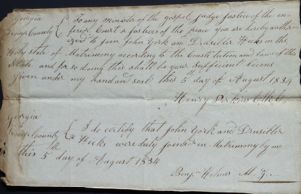 Georgia
Troup County } To any minister of the gospel, judge, justice of the in-
ferior Court or justice of the peace you are hereby autho-
rized to join John York and Drusilla Hicks in the
Holy state of Matrimony according to the Constitution and laws of this
State and for so doing this shall be your sufficient license
given under my hand and seal this 5th day of August 1834
Henry
Georgia
County } I do certify that John York and Drusilla
Hicks were duly joined in Matrimony by me
this 5th day of August 1834
Benj.